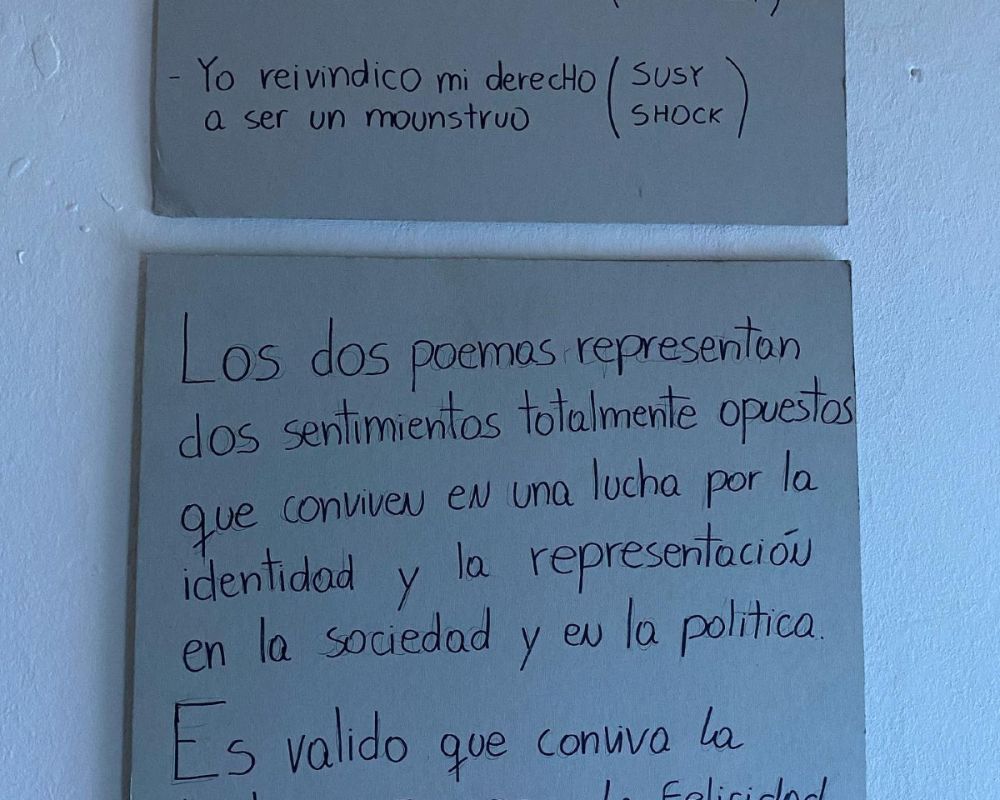 - Yo reivindico mi derecho (SUSY
a ser un mounstruo SHOCK)
Los dos poemas representan
dos sentimientos totalmente opuestos
que conviven en una lucha por la
identidad y la representación
en la sociedad y en la politica.
Es valido que conviva la
la Felicidad